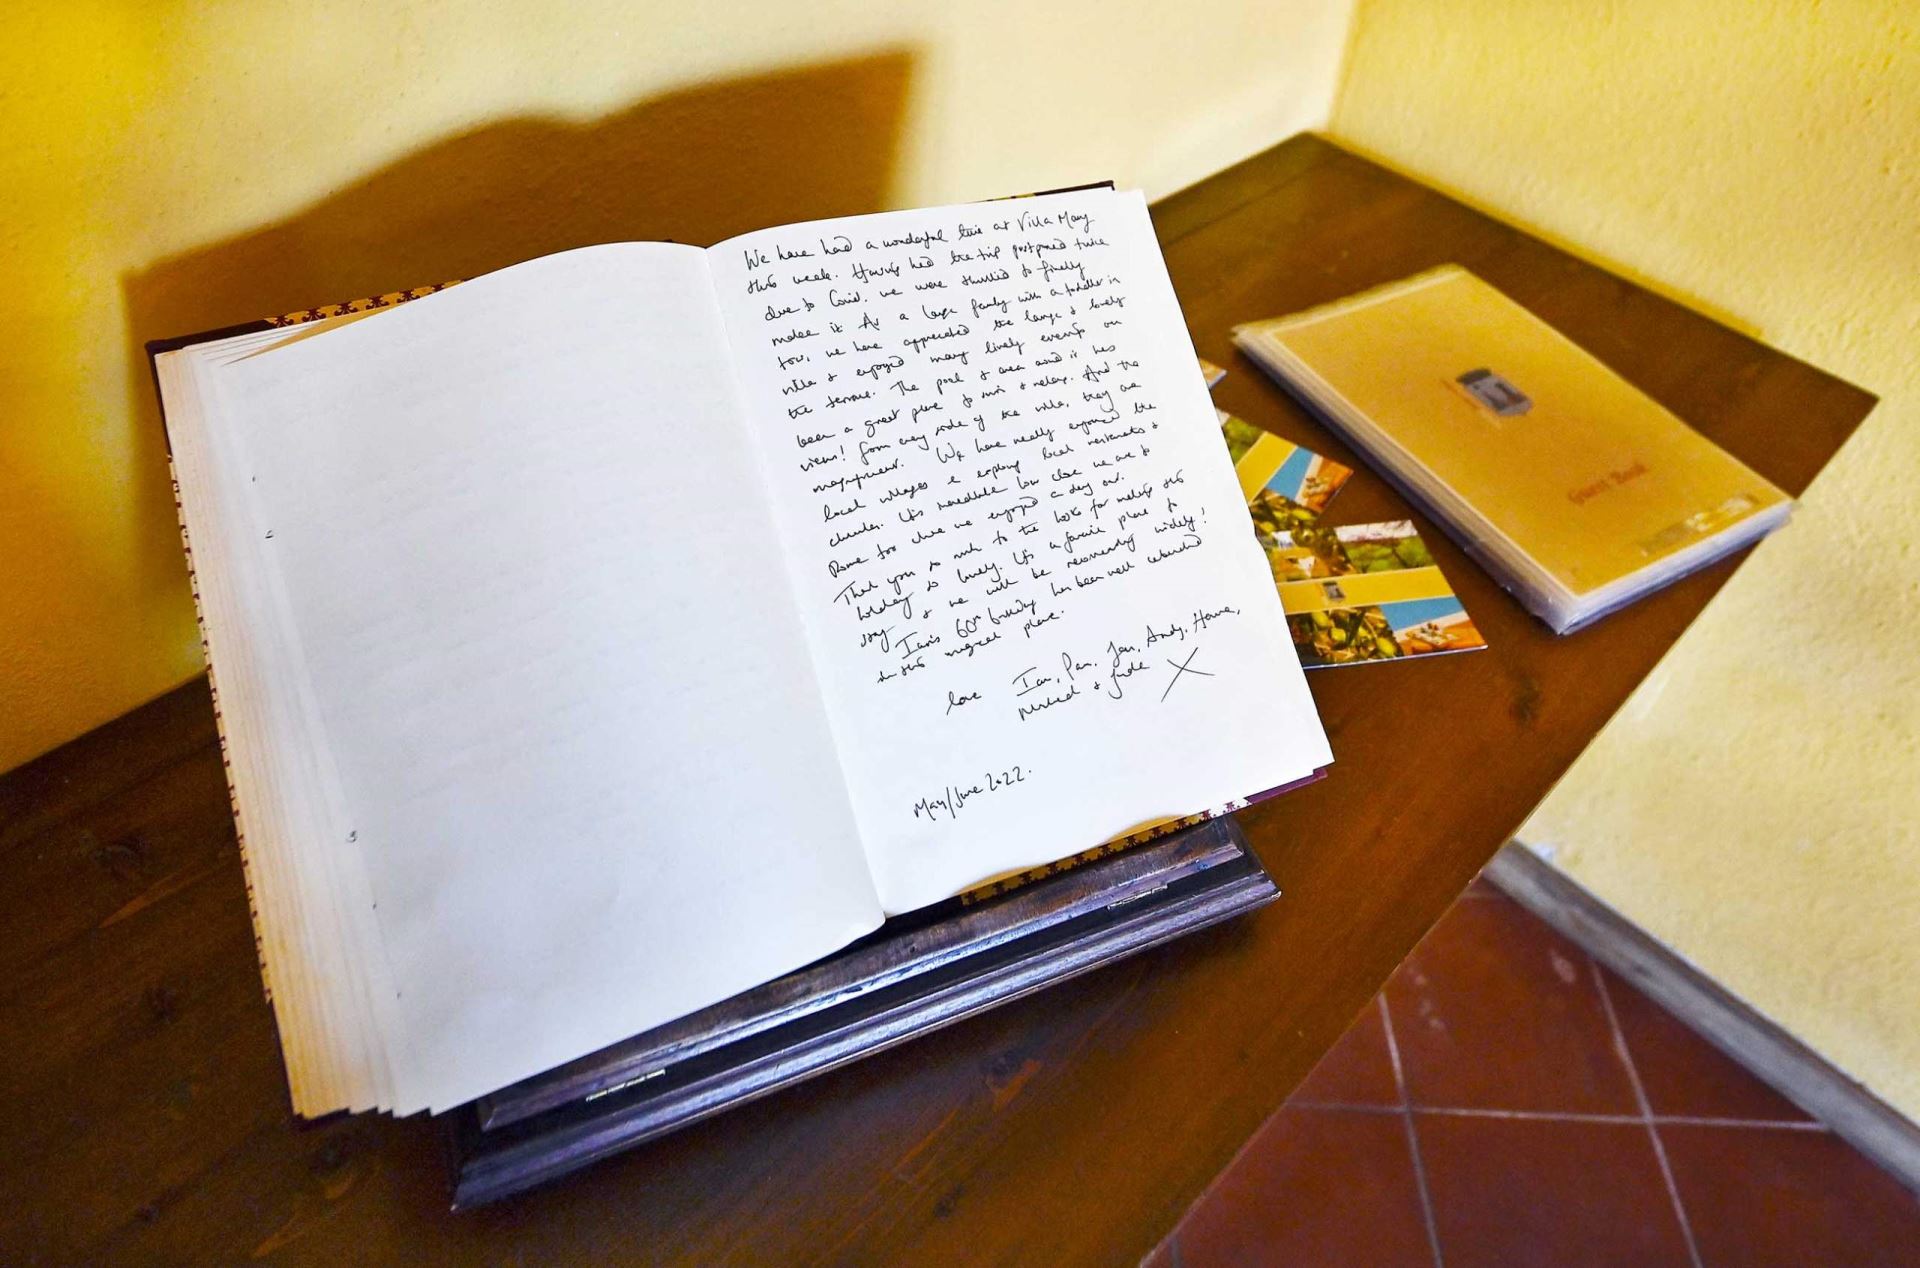 We have had a wonderful time at Villa Mary
this week. Having had the trip postponed twice
due to Covid. we were thrilled to finally
make it. As a large family with a toddler in
tow, we have appreciated the large & lovely
villa & enjoyed many lively evenings on
the terrace. The pool & area around it has
been a great place to swim & relax. And the
views! from every side of the villa, they are
magnificent. We have really enjoyed the
local villages & exploring local restaurants &
churches. It's incredible how close we are to
Rome too where we enjoyed a day out.
Thank you so much to the hosts for making this
holiday so lovely. It's a fantastic place to
stay & we will be recommending widely!
Ian's 60th birthday has been well celebrated
in this magical place.
love Ian, Pam, Jen, Andy,
& Jude X
May/June 2022.
Guest Book